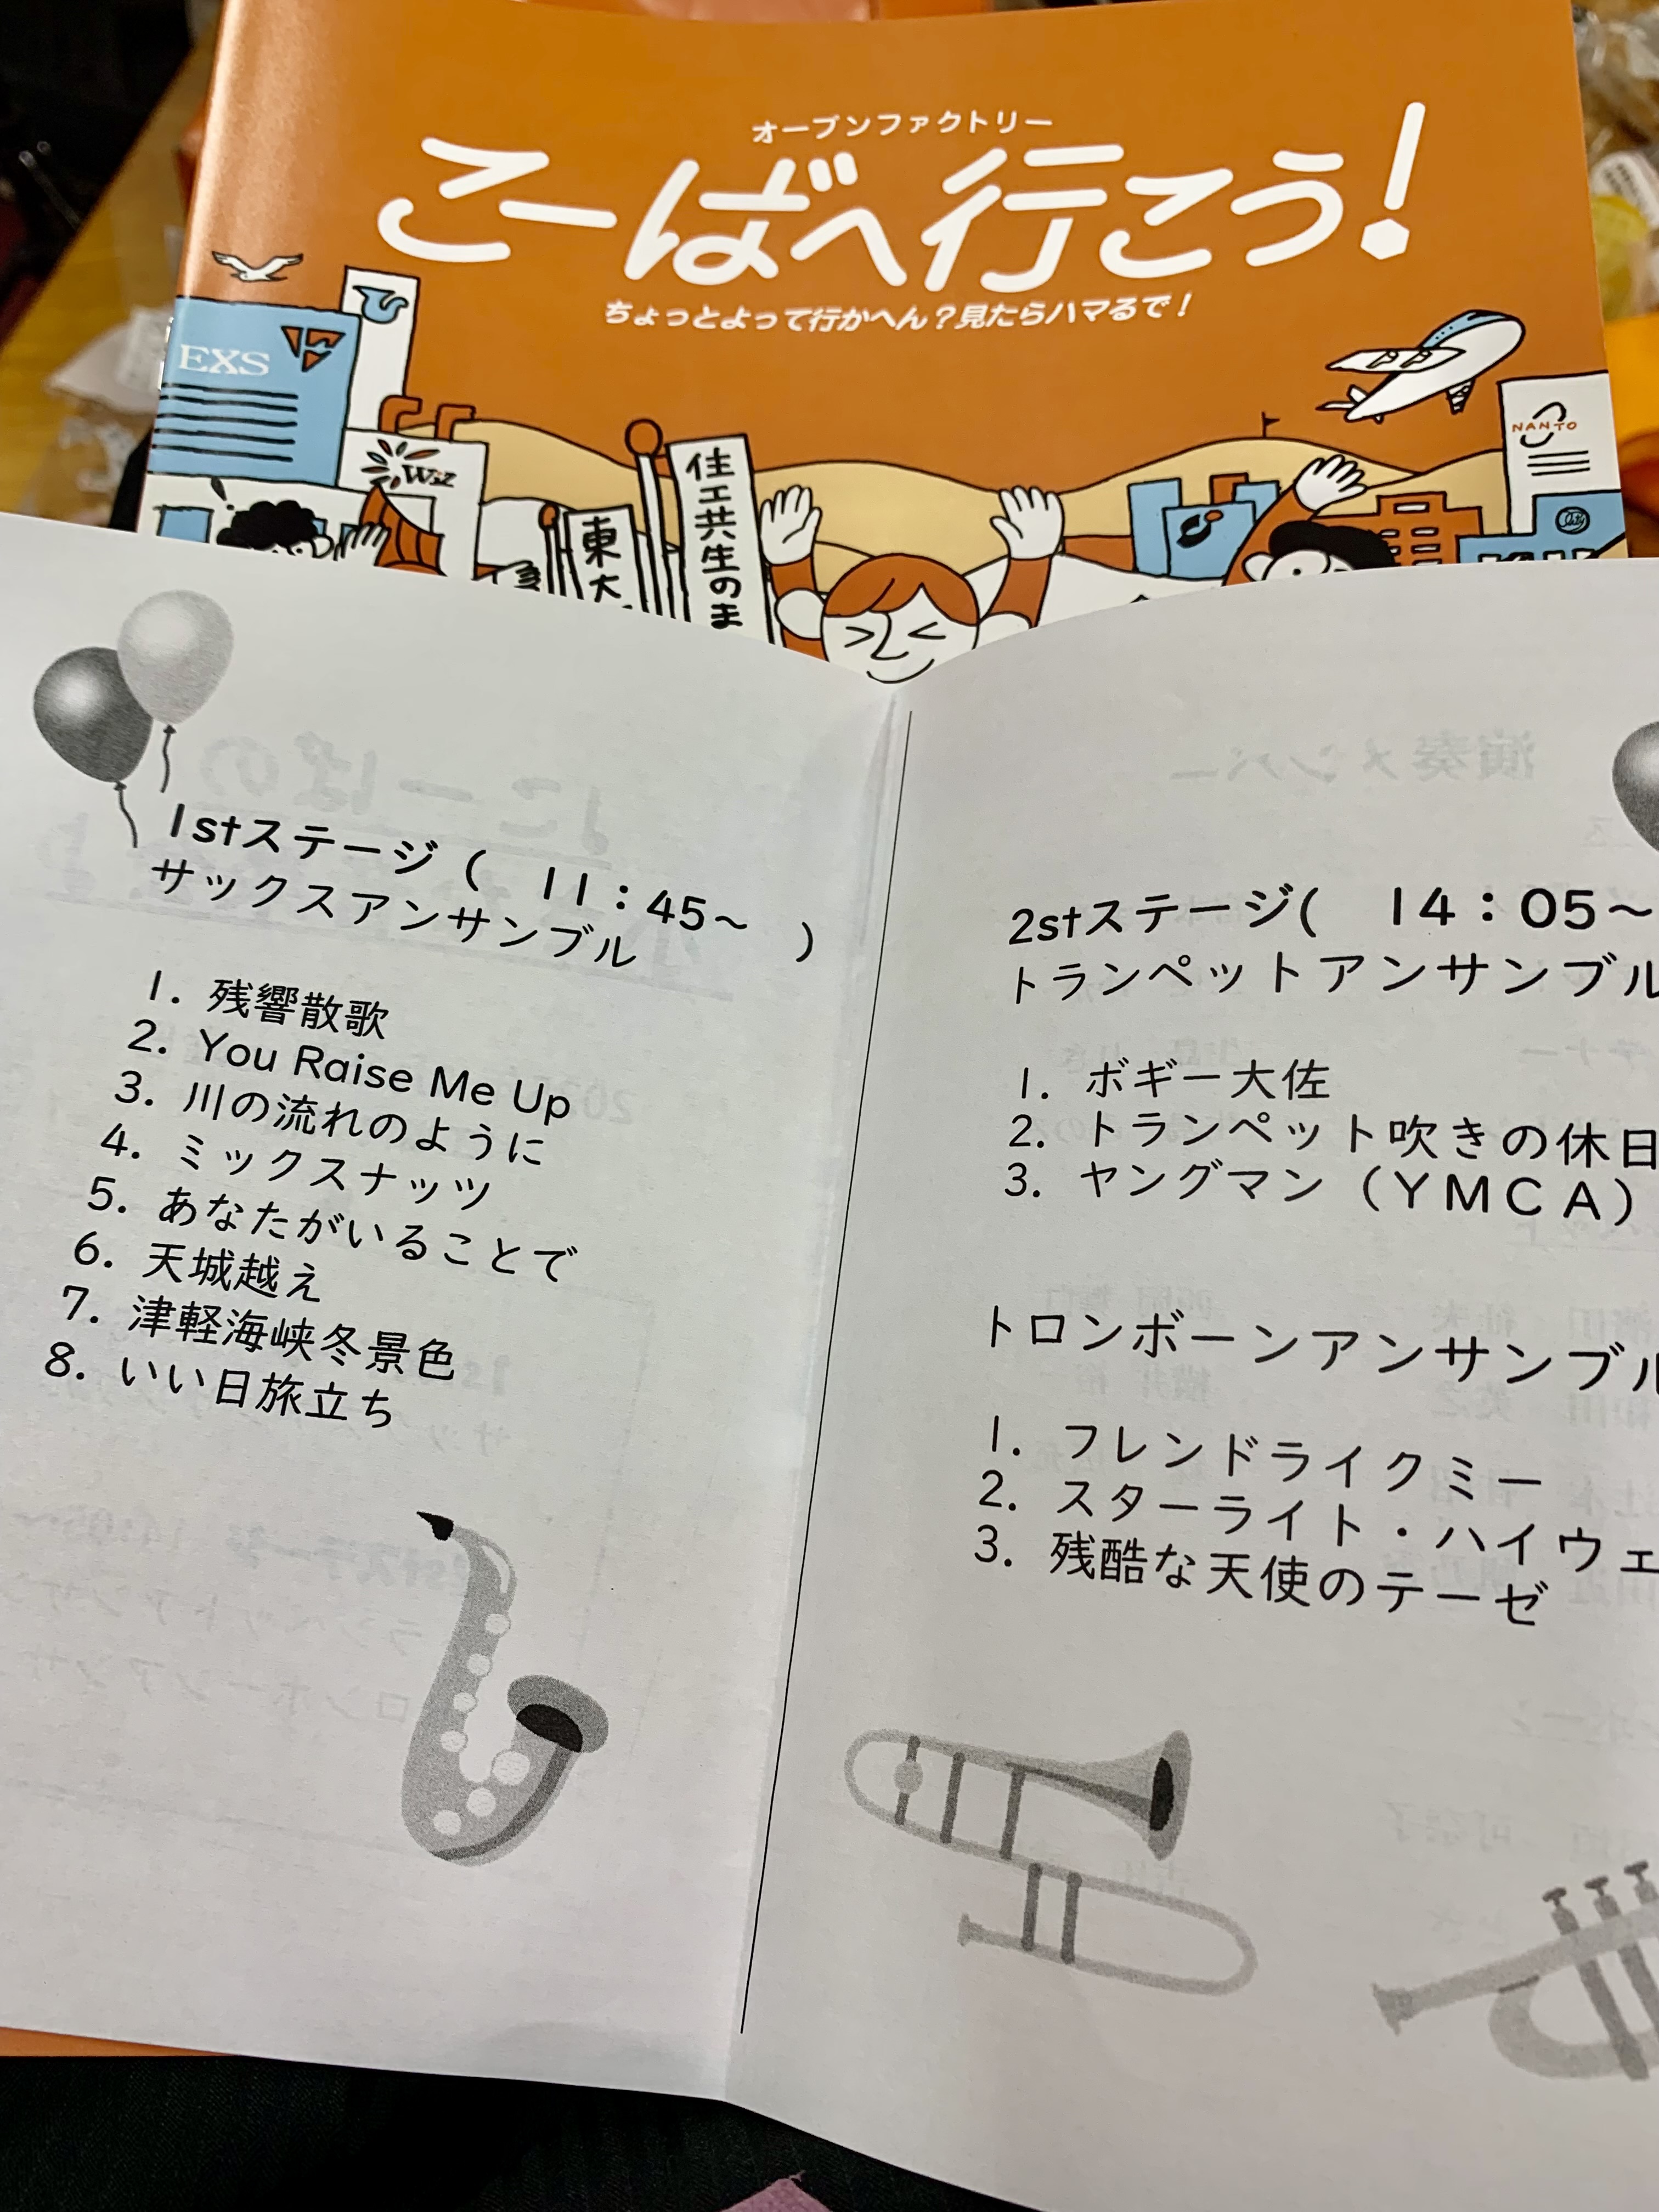 オープンファクトリー
こーばへ行こう!
ちょっとよって行かへん?見たらハマるで!
EXS
Wiz
NANTO
東大
住工共生のま
1stステージ( 11:45~ )
サックスアンサンブル
1. 残響散歌
2. You Raise Me Up
3. 川の流れのように
4. ミックスナッツ
5. あなたがいることで
6. 天城越え
7. 津軽海峡冬景色
8. いい日旅立ち
2stステージ( 14:05~
トランペットアンサンブル
1. ボギー大佐
2. トランペット吹きの休日
3. ヤングマン(YMCA)
トロンボーンアンサンブル
1. フレンドライクミー
2. スターライト・ハイウェ
3. 残酷な天使のテーゼ